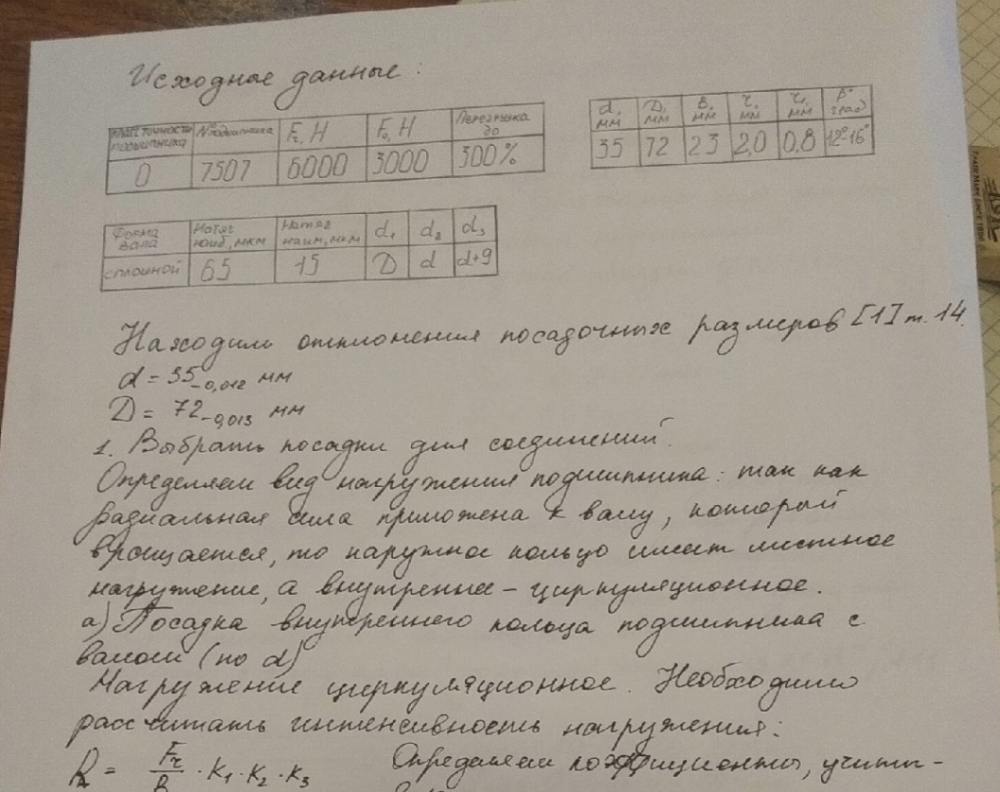 Исходные данные:
класс точности подшипника № подшипника Fr, H Fa, H Перегрузка до
0 7507 6000 3000 300%
d, мм D, мм B, мм r, мм r1, мм β° град
35 72 23 2,0 0,8 12°-16°
Форма вала Натяг наиб, мкм Натяг наим, мкм d1 d2 d3
сплошной 65 15 D d d+9
Находим отклонения посадочных размеров [1] т. 14.
d = 35-0,012 мм
D = 72-0,013 мм
1. Выбрать посадки для соединений.
Определяем вид нагружения подшипника: так как
радиальная сила приложена к валу, который
вращается, то наружное кольцо имеет местное
нагружение, а внутреннее – циркуляционное.
а) Посадка внутреннего кольца подшипника с
валом (по d)
Нагружение циркуляционное. Необходимо
рассчитать интенсивность нагружения:
PR = Fr/B · K1 · K2 · K3 Определяем коэффициенты, учиты-